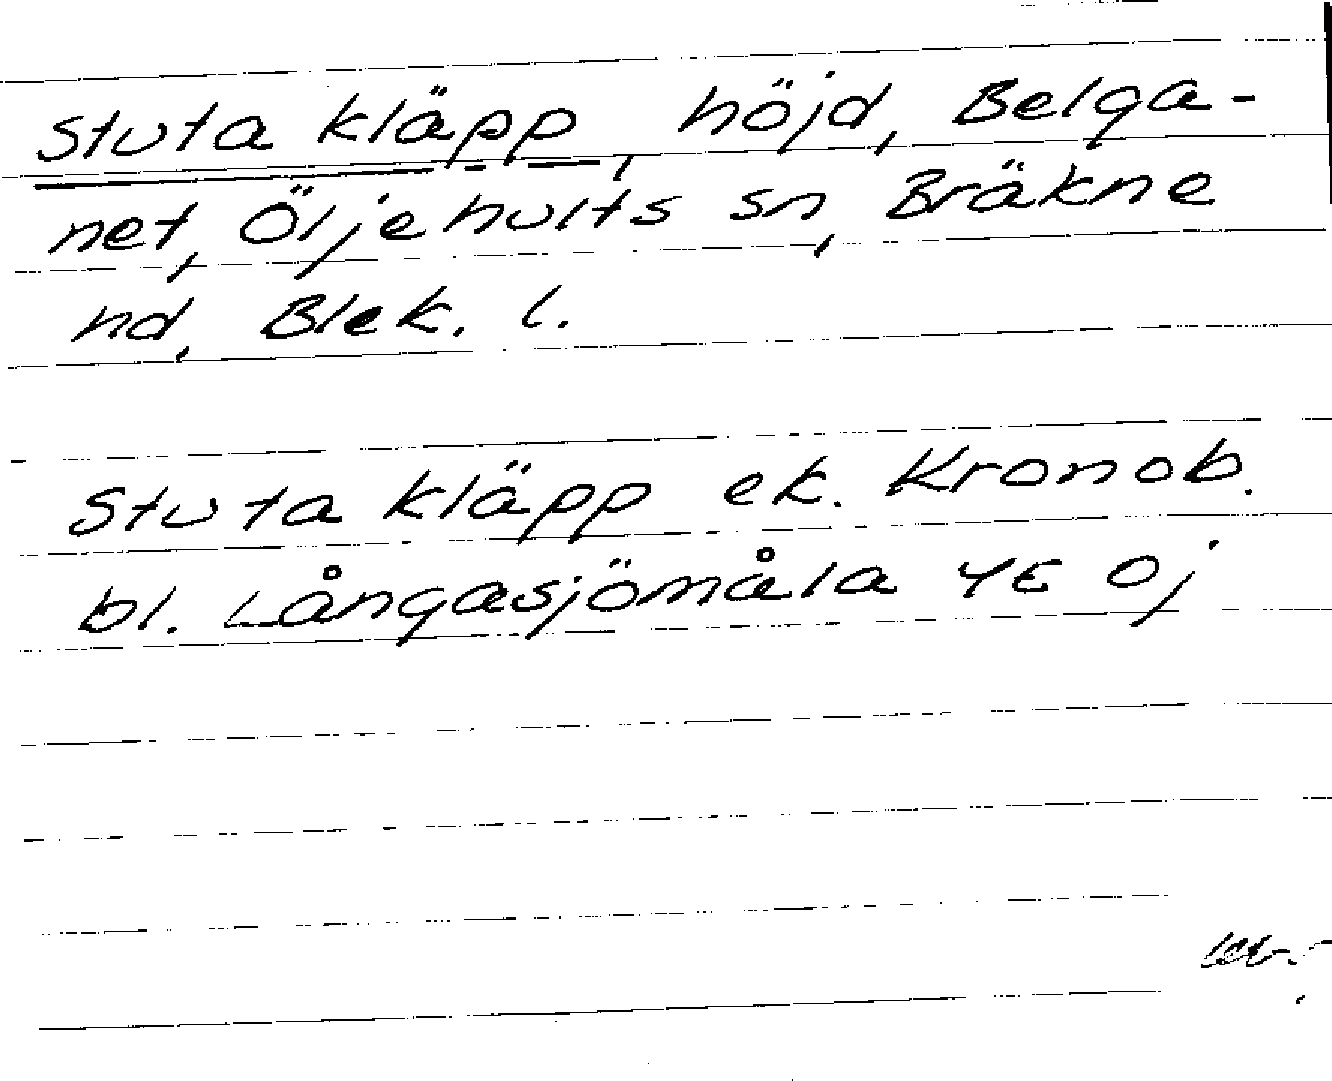 Stuta kläpp, höjd, Belga-
net, Öljehults sn, Bräkne
hd, Blek. l.
Stuta kläpp ek. Kronob.
bl. Långasjömåla 4E 0j